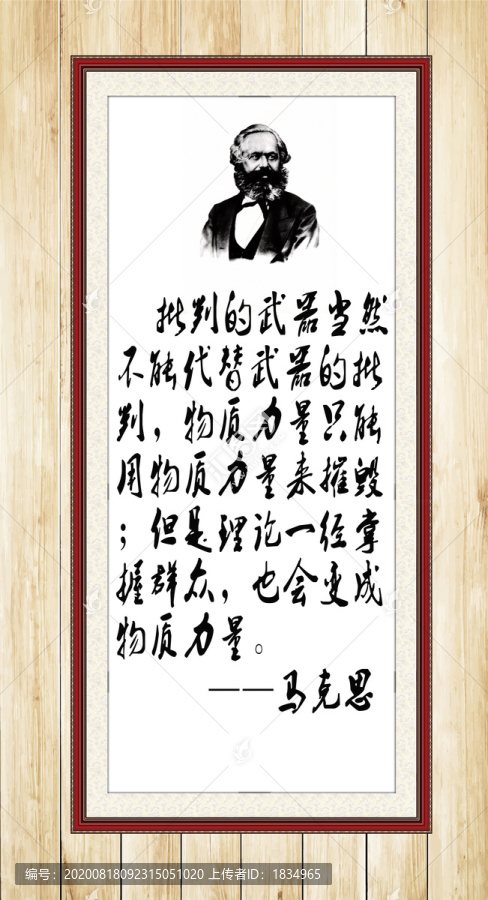 批判的武器当然
不能代替武器的批
判，物质力量只能
用物质力量来摧毁
；但是理论一经掌
握群众，也会变成
物质力量。
——马克思
编号：20200818092315051020 上传者ID：1834965